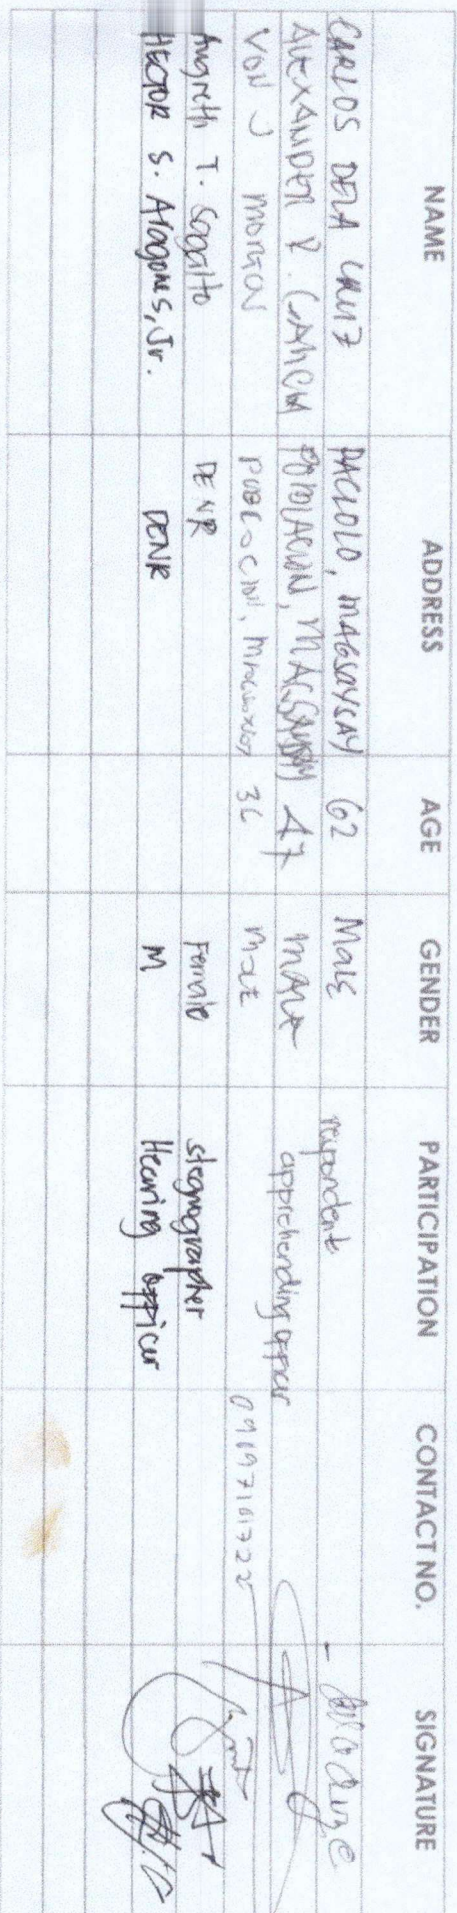 NAME ADDRESS AGE GENDER PARTICIPATION CONTACT NO. SIGNATURE
CARLOS DELA CRUZ PACLOLO, MAGSAYSAY 62 Male respondent
ALEXANDER P. GARCIA POBLACION, MAGSAYSAY 47 MALE apprehending officer
VON J 36 Male
T. DENR Female stenographer
HECTOR S. Aragones, Jr. DENR M Hearing Officer